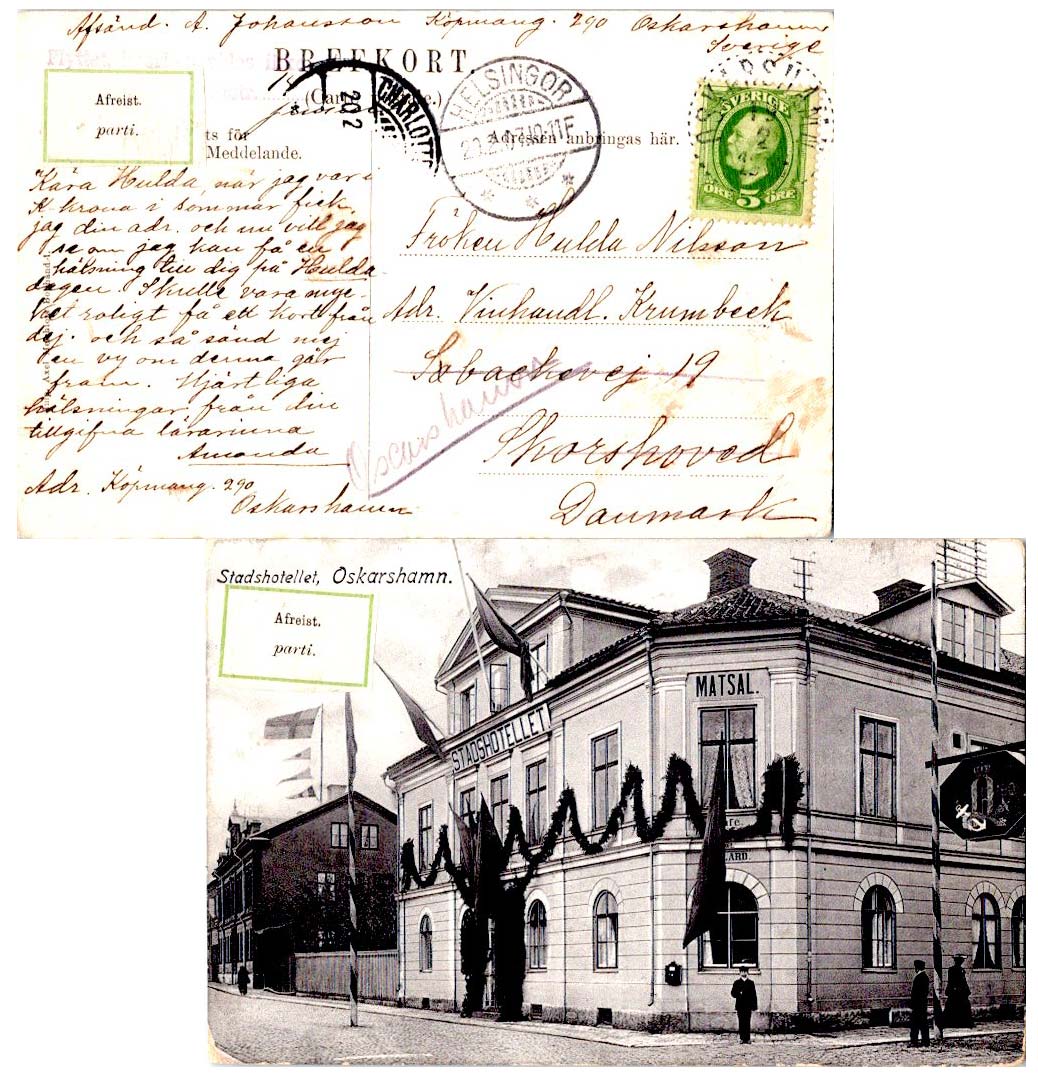 Afsänd. A. Johansson Köpmang. 290 Oskarshamn
Sverige
BREFKORT.
Afreist.
parti.
14
CHARLOTTE
20 2
HELSINGØR
10-11F
SVERIGE
5
ÖRE ÖRE
ts för
Meddelande.
Adressen anbringas här.
Kära Hulda, når jag var i
K krona i sommar fick
jag din adr. och nu vill jag
se om jag kan få en
hälsning till dig på Hulda
dagen. Skulle vara myc-
ket roligt få ett kort från
dej. och så sänd mej
en vy om denna går
fram. Hjärtliga
hälsningar från din
tillgifna lärarinna
Amanda
Adr. Köpmang. 290
Oskarshamn
Fröken Hulda Nilsson
Adr. Vinhandl. Krumbeck
Sobacksvej 19
Skorshoved
Danmark
Oscarshamn
Stadshotellet, Oskarshamn.
Afreist.
parti.
MATSAL.
STADSHOTELLET.